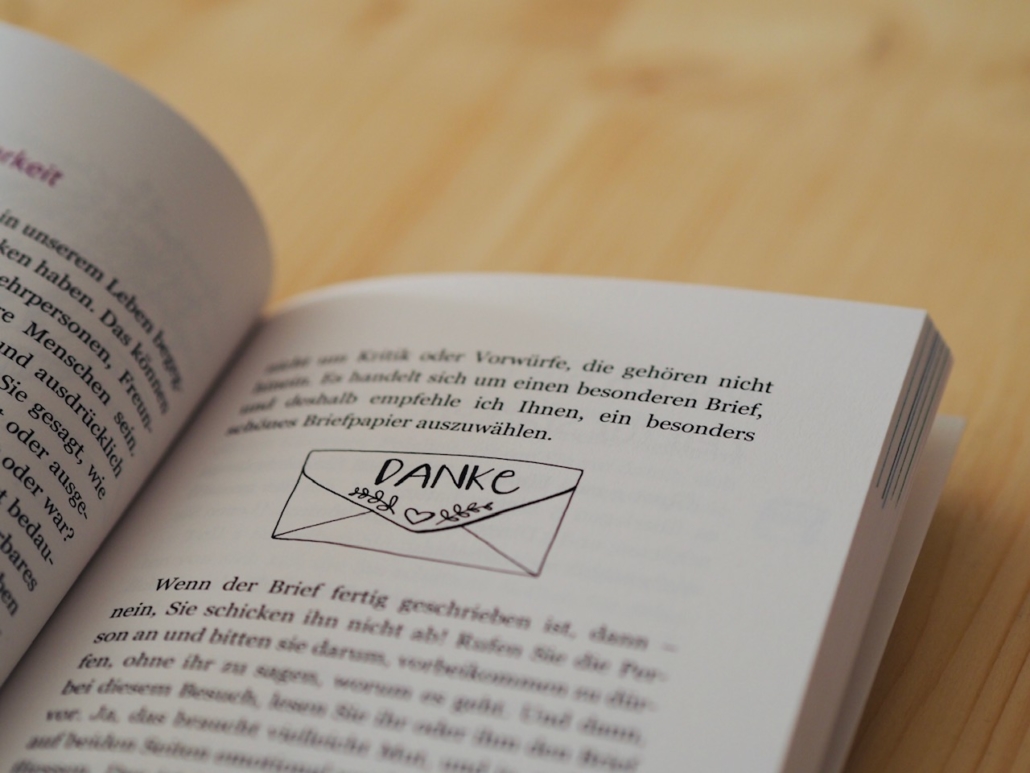 in unserem Leben begeg-
ken haben. Das können
ehrpersonen, Freun-
re Menschen sein,
und ausdrücklich
Sie gesagt, wie
oder ausge-
oder war?
bedau-
rbares
ben
nicht um Kritik oder Vorwürfe, die gehören nicht
hinein. Es handelt sich um einen besonderen Brief,
und deshalb empfehle ich Ihnen, ein besonders
schönes Briefpapier auszuwählen.
DANKE
Wenn der Brief fertig geschrieben ist, dann –
nein, Sie schicken ihn nicht ab! Rufen Sie die Per-
son an und bitten sie darum, vorbeikommen zu dür-
fen, ohne ihr zu sagen, worum es geht. Und dann,
bei diesem Besuch, lesen Sie ihr oder ihm den Brief
vor. Ja, das braucht vielleicht Mut, und
auf beiden Seiten